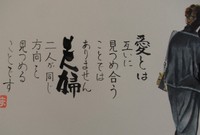 愛とは
互いに
見つめ合う
ことでは
ありません
夫婦
二人が同じ
方向を
見つめる
ことです